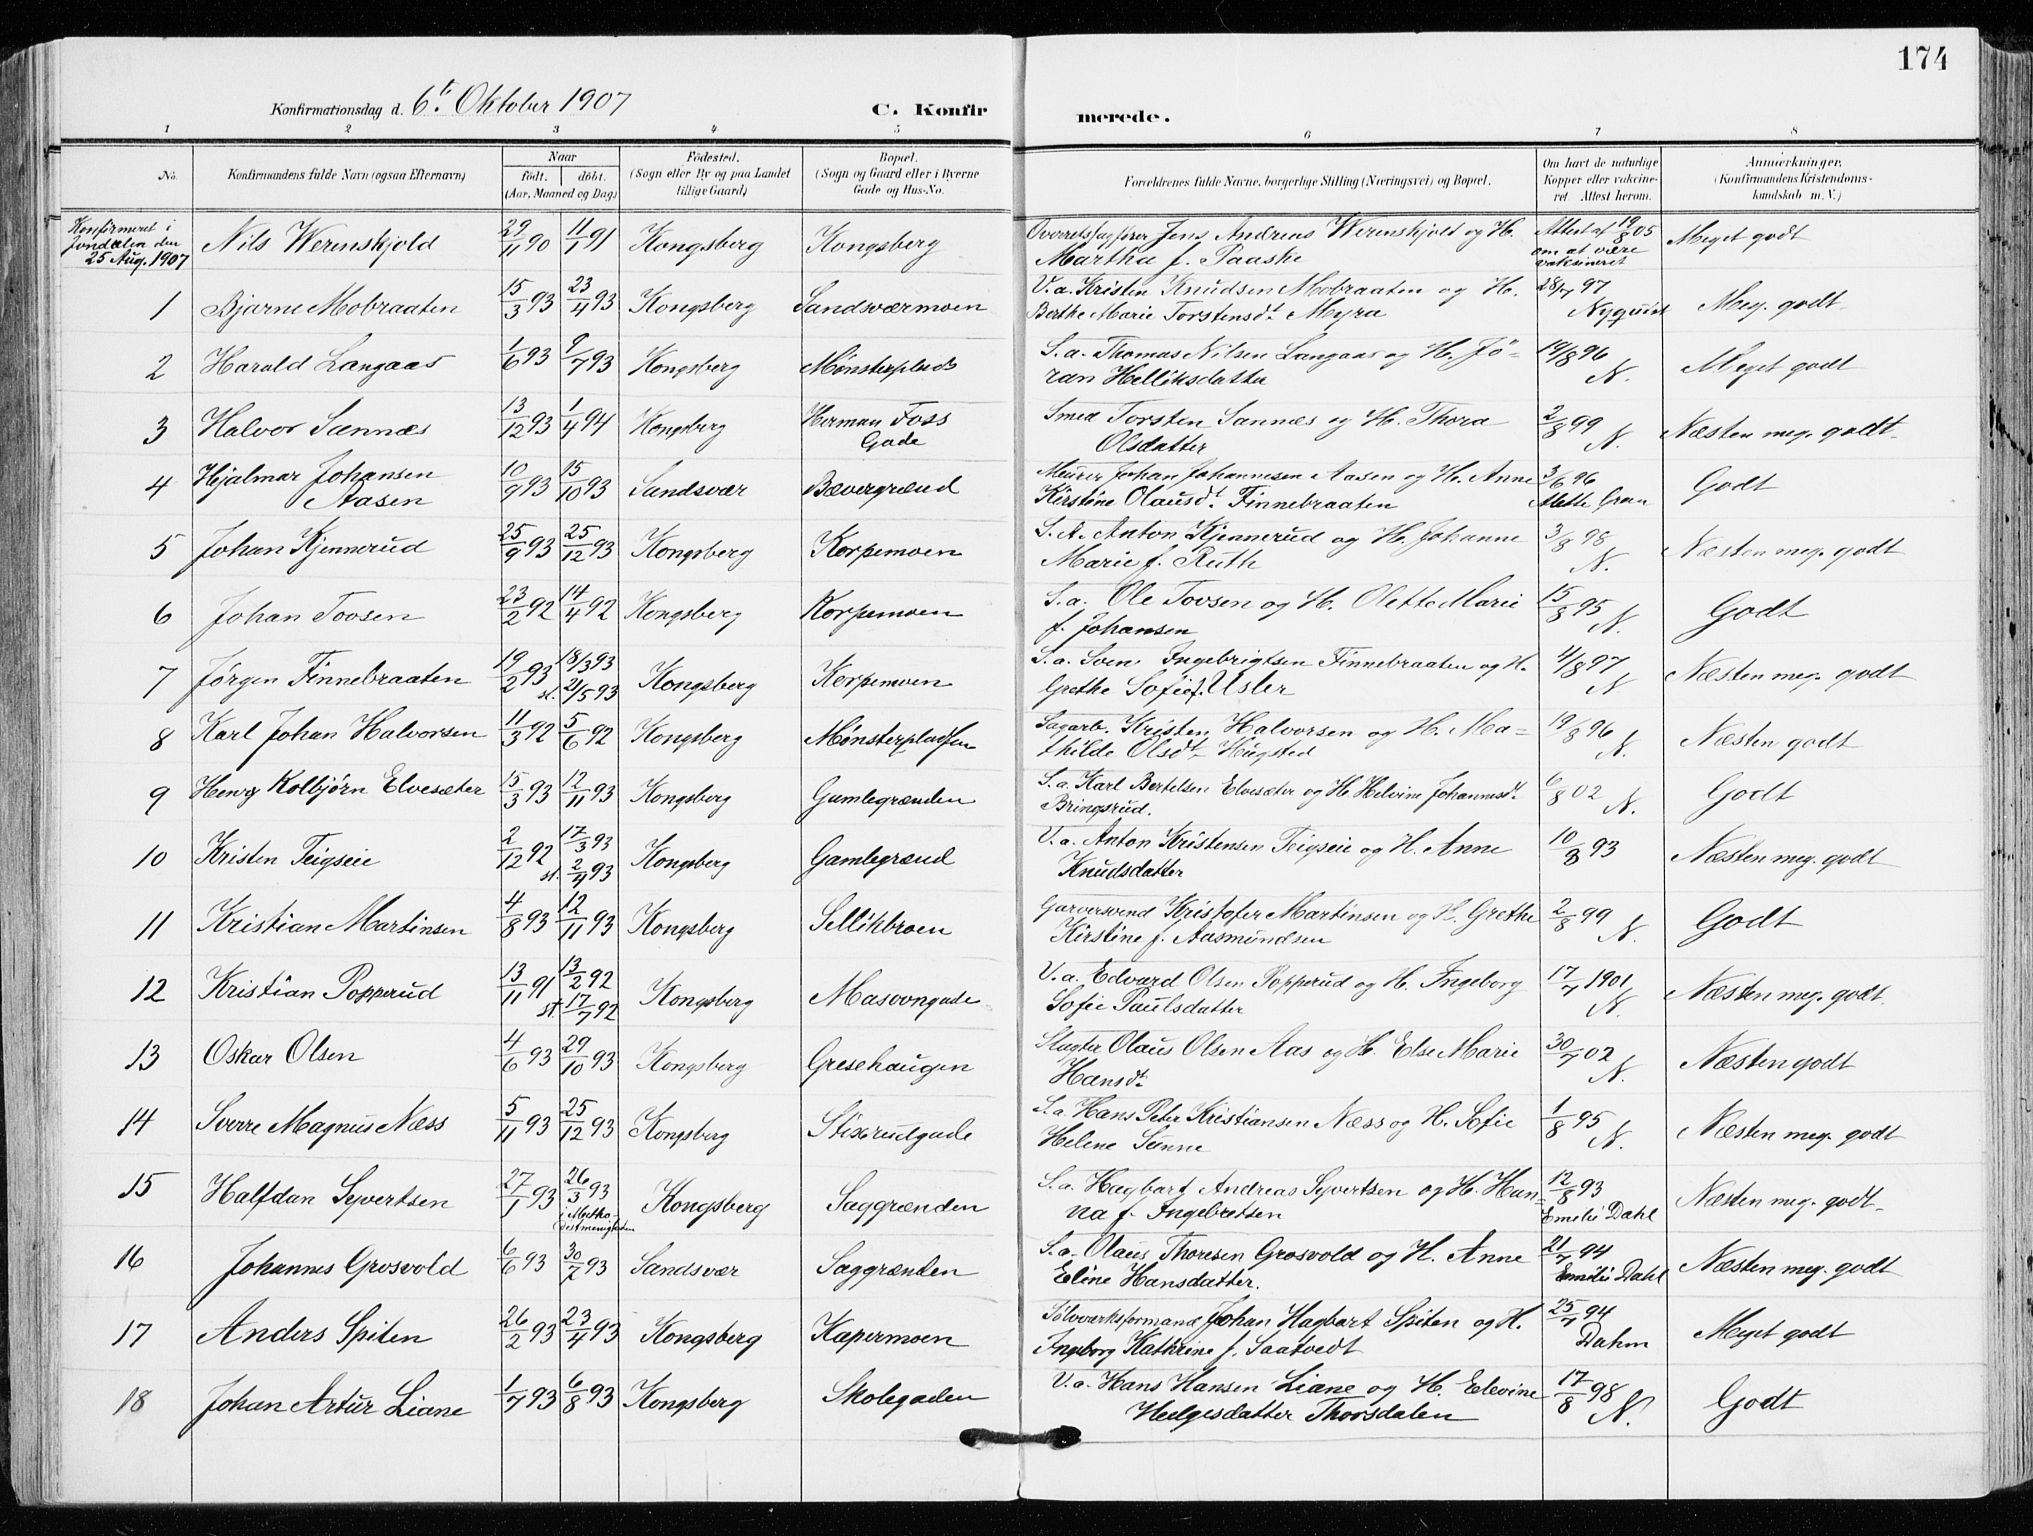 174
Konfirmationsdag d. 6t. Oktober 1907
C. Konfirmerede.
1 2 3 4 5 6 7 8
No. Konfirmandens fulde Navn (ogsaa Efternavn) Naar født. døbt. (Aar, Maaned og Dag) Fødested. (Sogn eller By og paa Landet tillige Gaard) Bopæl. (Sogn og Gaard eller i Byerne Gade og Hus-No. Forældrenes fulde Navne, borgerlige Stilling (Næringsvei) og Bopæl. Om havt de naturlige Kopper eller vakcineret. Attest herom. Anmerkninger. (Konfirmandens Kristendomskundskab m. V.)
Konfirmeret i Jondalen den 25 Aug. 1907 Nils Werenskjold 29/11 90 11/1 91 Kongsberg Kongsberg Overretssagfører Jens Andreas Werenskjold og H. Martha f. Paaske Attest af 19/8 05 om at være vaksineret Meget godt
1 Bjarne Mobraaten 15/3 93 23/4 93 Kongsberg Sandsværmoen V.a. Kristen Knudsen Mobraaten og H. Berthe Marie Torstensdt. Myra 28/7 97 Nyquist Meg. godt
2 Harald Langaas 1/6 93 9/7 93 Kongsberg Mønsterplads S.a. Thomas Nilsen Langaas og H. Jøran Helliksdatter 14/8 96 N. Meget godt
3 Halvor Sannæs 13/12 93 1/4 94 Kongsberg Herman Foss Gade Smed Torsten Sannæs og H. Thora Olsdatter 2/8 99 N. Næsten meg. godt
4 Hjalmar Johansen Aasen 10/9 93 15/10 93 Sandsvær Bævergrænd Meurer Johan Johannesen Aasen og H. Anne Kirstine Olausdt. Finnebraaten 3/6 96 Mette Gran Godt
5 Johan Kjennerud 25/9 93 25/12 93 Kongsberg Korpemoen S.A. Anton Kjennerud og H. Johanne Marie f. Ruth 3/8 98 N. Næsten meg. godt
6 Johan Tovsen 23/2 92 14/4 92 Kongsberg Korpemoen S.a. Ole Tovsen og H. Olette Marie f. Johansen 15/8 95 N. Godt
7 Jørgen Finnebraaten 19/2 93 18/3 93 st. 21/5 93 Kongsberg Korpemoen S.a. Sven Ingebrigtsen Finnebraaten og H. Grethe Sofie f. Usler 4/8 97 N Næsten meg. godt
8 Karl Johan Halvorsen 11/3 92 5/6 92 Kongsberg Mønsterpladsen Sagarb. Kristen Halvorsen og H. Mathilde Olsdt. Hugsted 19/8 96 N. Næsten godt
9 Henry Kolbjørn Elvesæter 15/3 93 12/11 93 Kongsberg Gamlegrænden S.a. Karl Bertelsen Elvesæter og H. Helvine Johannesdt. Bringsrud. 6/8 02 N. Godt
10 Kristen Teigseie 2/12 92 17/3 93 st. 2/4 93 Kongsberg Gamlegrænd V.a. Anton Kristensen Teigseie og H. Anne Knudsdatter 10/8 93 Næsten meg. godt
11 Kristian Martinsen 4/8 93 12/11 93 Kongsberg Sellikbroen Garversvend Kristofer Martinsen og H. Grethe Kirstine f. Aasmundsen 2/8 99 N. Godt
12 Kristian Popperud 13/11 91 13/2 92 st. 17/7 92 Kongsberg Masovngade V.a. Edvard Olsen Popperud og H. Ingeborg Sofie Paulsdatter 17/7 1901 N. Næsten meg. godt.
13 Oskar Olsen 4/6 93 29/10 93 Kongsberg Gresehaugen Slagter Olaus Olsen Aas og H. Else Marie Hansdt. 30/7 02 N. Næsten godt
14 Sverre Magnus Næss 5/11 93 25/12 93 Kongsberg Stixrudgade S.a. Hans Peter Kristiansen Næss og H. Sofie Helene Sunne 1/8 95 N. Næsten meg. godt
15 Halfdan Syvertsen 27/1 93 26/3 93 i Methodistmenigheden Kongsberg Saggrænden S.a. Hagbart Andreas Syvertsen og H. Hanna f. Ingebretsen 12/8 93 Emilie Dahl Næsten meg. godt
16 Johannes Grosvold 6/6 93 30/7 93 Sandsvær Saggrænden S.a. Olaus Thoresen Grosvold og H. Anne Eline Hansdatter. 21/7 94 Emilie Dahl Næsten meg. godt
17 Anders Spiten 26/2 93 23/4 93 Kongsberg Kapermoen Sølvverksformand Johan Hagbart Spiten og H. Ingeborg Kathrine f. Saatvedt 25/7 94 Dahm Meget godt
18 Johan Artur Liane 1/7 93 6/8 93 Kongsberg Skolegaden V.a. Hans Hansen Liane og H. Elevine Helgesdatter Thorsdalen 17/8 98 N. Godt